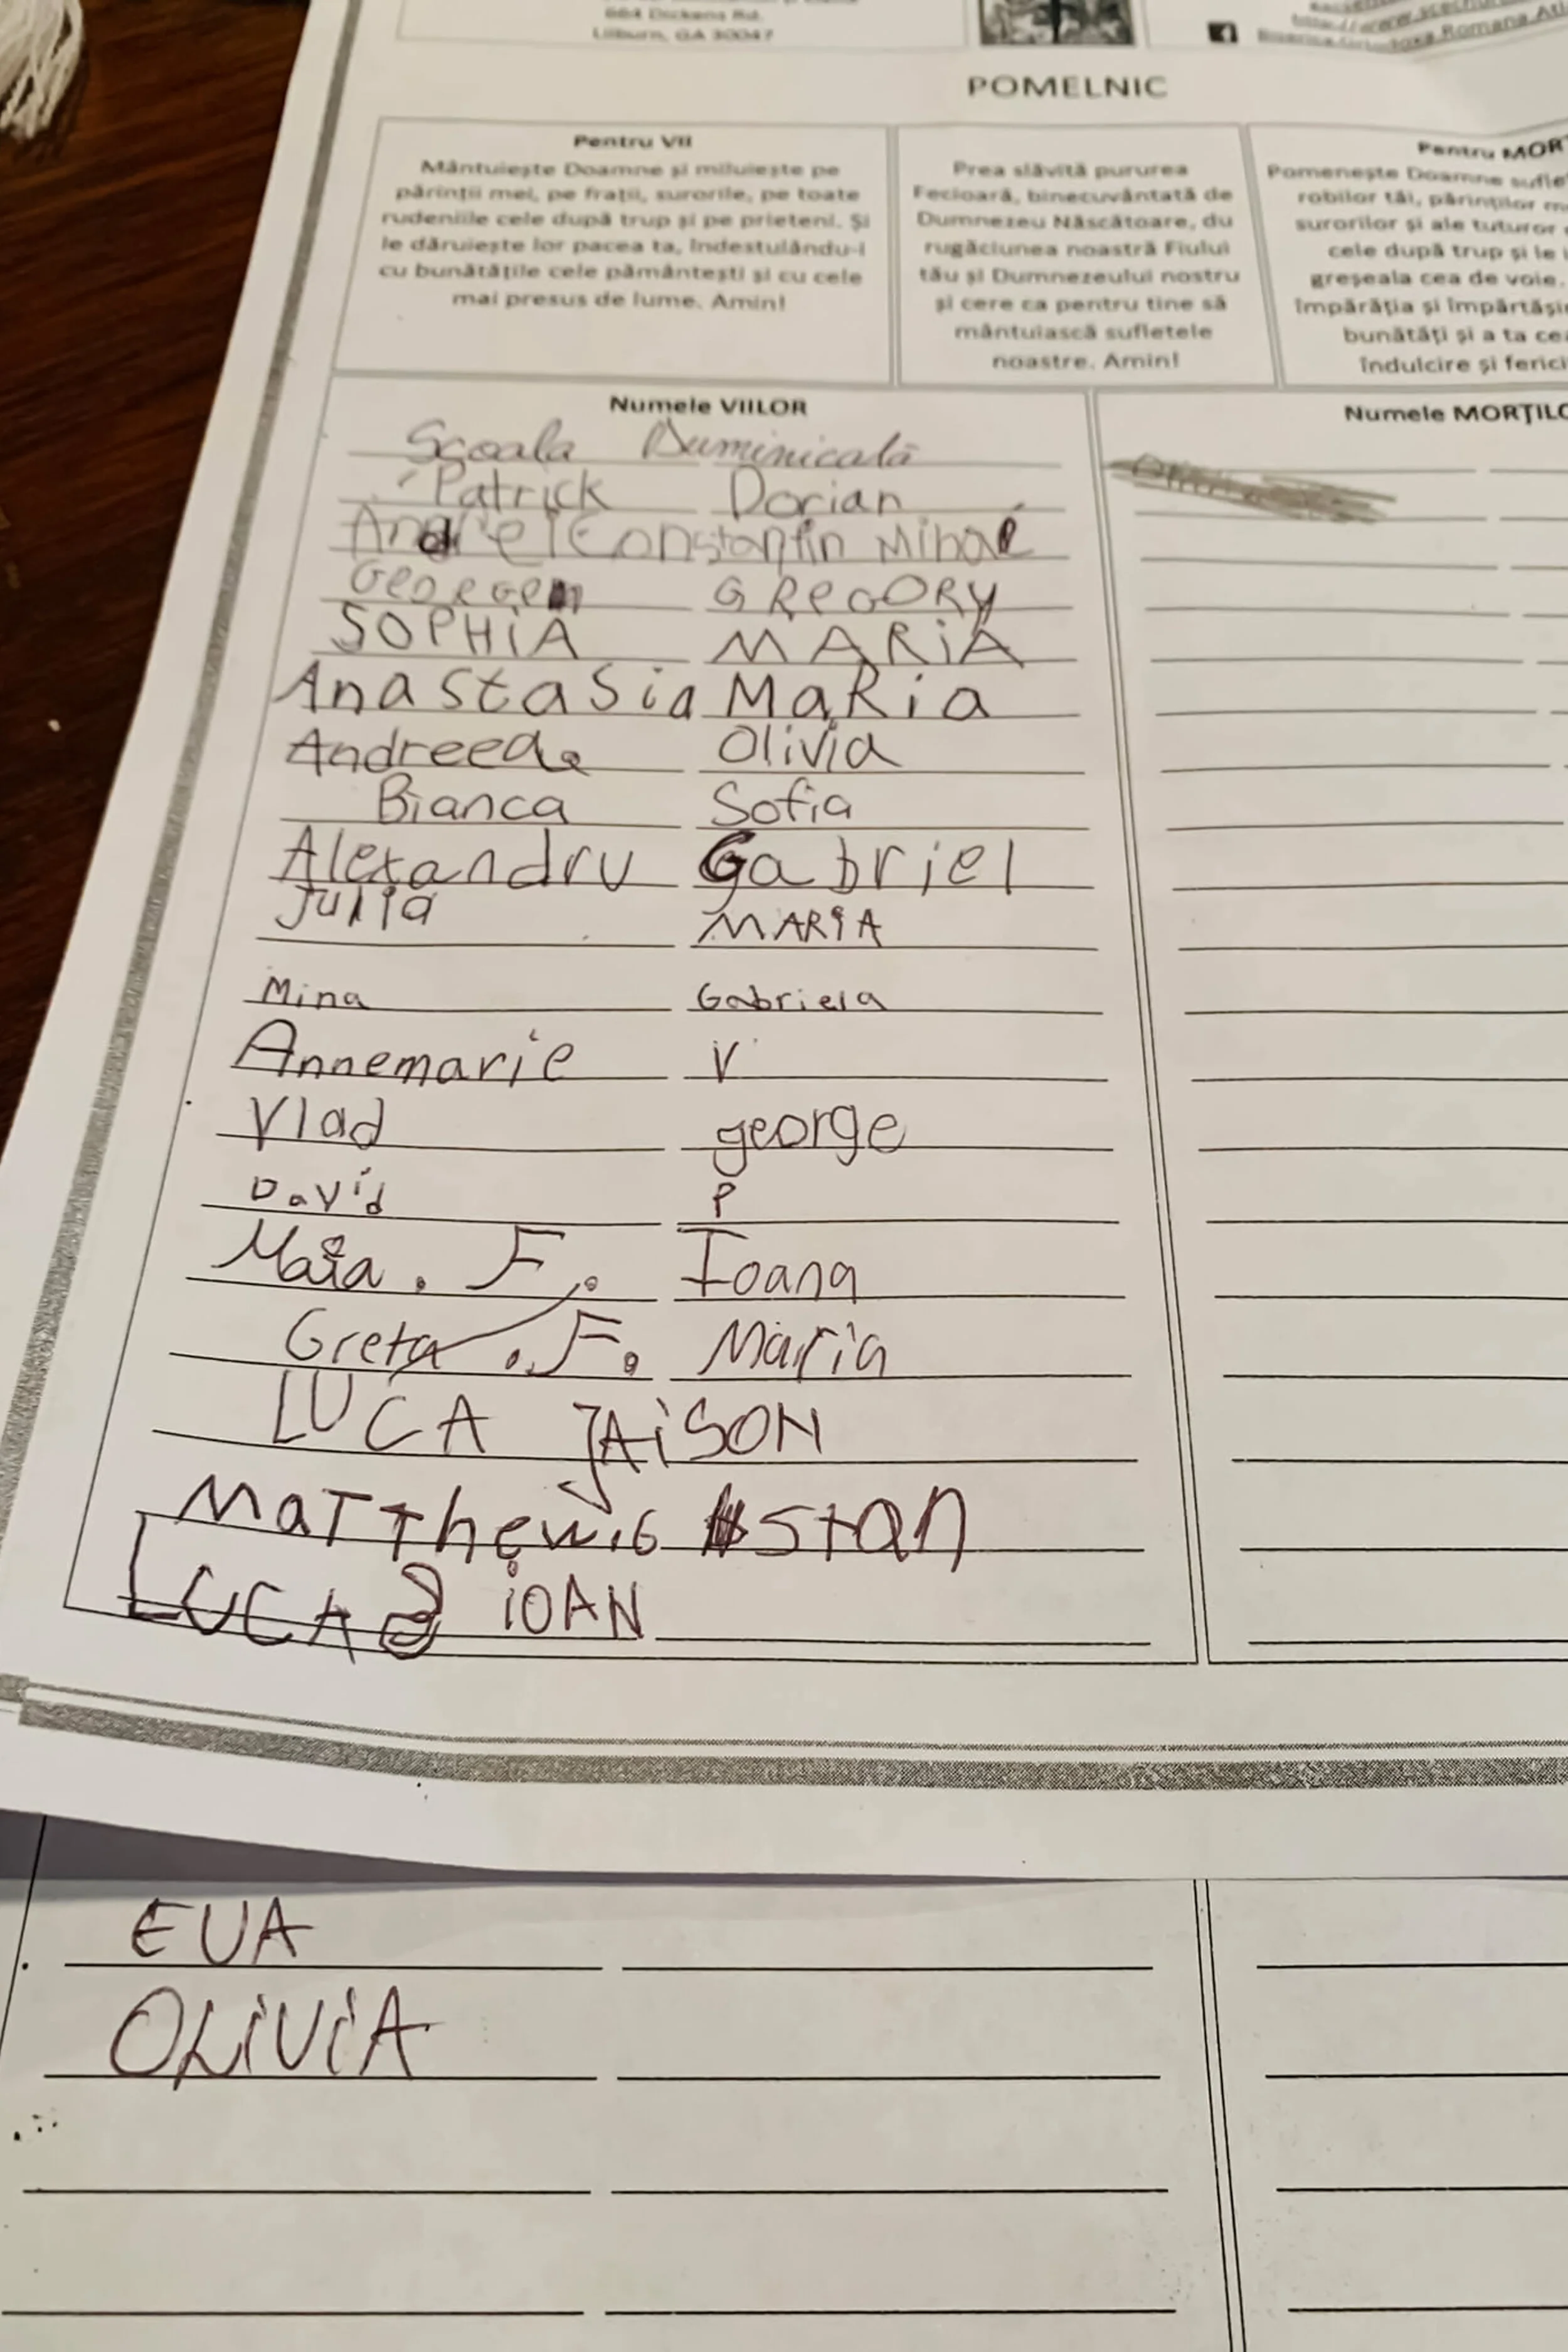 664 Dickens Rd.
Lilburn, GA 30047
POMELNIC
Pentru VII
Mântuiește Doamne și miluiește pe
părinții mei, pe frații, surorile, pe toate
rudeniile cele după trup și pe prieteni. Și
le dăruiește lor pacea ta, îndestulându-i
cu bunătățile cele pământești și cu cele
mai presus de lume. Amin!
Prea slăvită pururea
Fecioară, binecuvântată de
Dumnezeu Născătoare, du
rugăciunea noastră Fiului
tău și Dumnezeului nostru
și cere ca pentru tine să
mântuiască sufletele
noastre. Amin!
Pentru MOR
Pomenește Doamne sufle
robilor tăi, părinților m
surorilor și ale tuturor
cele după trup și le i
greșeala cea de voie.
împărăția și împărtăși
bunătăți și a ta cea
îndulcire și ferici
Numele VIILOR
Numele MORȚILO
Școala Duminicală
Patrick Dorian
Andrei Constantin Mihai
George GREGORY
SOPHIA MARIA
Anastasia MaRia
Andreea Olivia
Bianca Sofia
Alexandru Gabriel
Julia MARIA
Mina Gabriela
Annemarie V
Vlad george
David P
Maia . F. Ioana
Greta . F. Maria
LUCA JAiSON
MaTThew Stan
LUCA iOAN
EVA
OLiViA